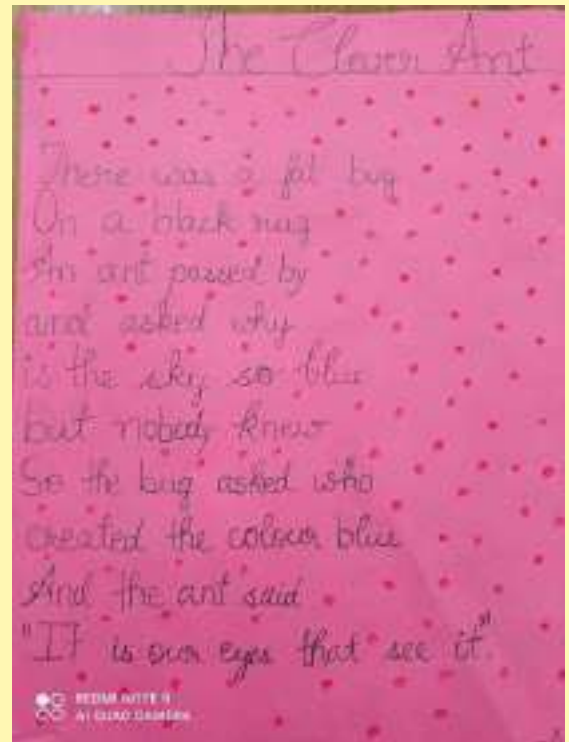 The Clever Ant
There was a fat bug
On a black rug
An ant passed by
and asked why
is the sky so blue
but nobody knew
So the bug asked who
created the colour blue
And the ant said
"It is our eyes that see it".
REDMI NOTE 9
AI QUAD CAMERA